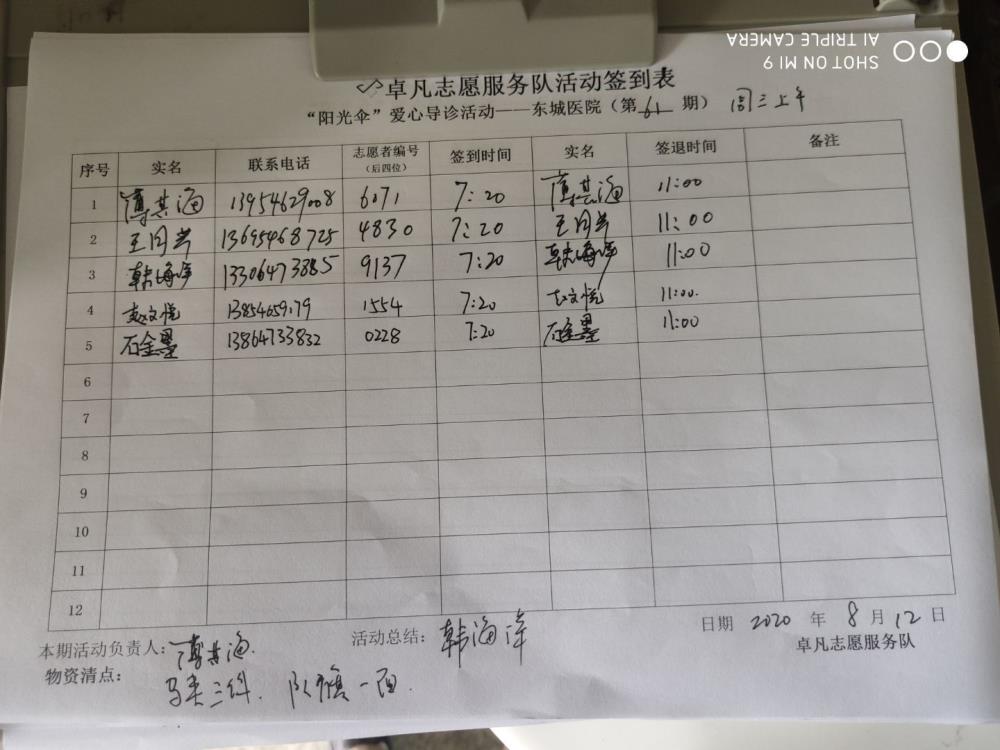 SHOT ON MI 9
AI TRIPLE CAMERA
卓凡志愿服务队活动签到表
“阳光伞”爱心导诊活动——东城医院（第 61 期） 周三上午
序号 实名 联系电话 志愿者编号（后四位） 签到时间 实名 签退时间 备注
1 薄其海 13954629008 6071 7:20 薄其海 11:00
2 13695468725 4830 7:20 11:00
3 韩海峰 13306473885 9137 7:20 韩海峰 11:00
4 赵文悦 13854659179 1554 7:20 赵文悦 11:00
5 石金墨 13864733832 0228 7:20 石金墨 11:00
6
7
8
9
10
11
12
日期 2020 年 8 月 12 日
卓凡志愿服务队
本期活动负责人：薄其海 活动总结：韩海峰
物资清点：
队旗一面